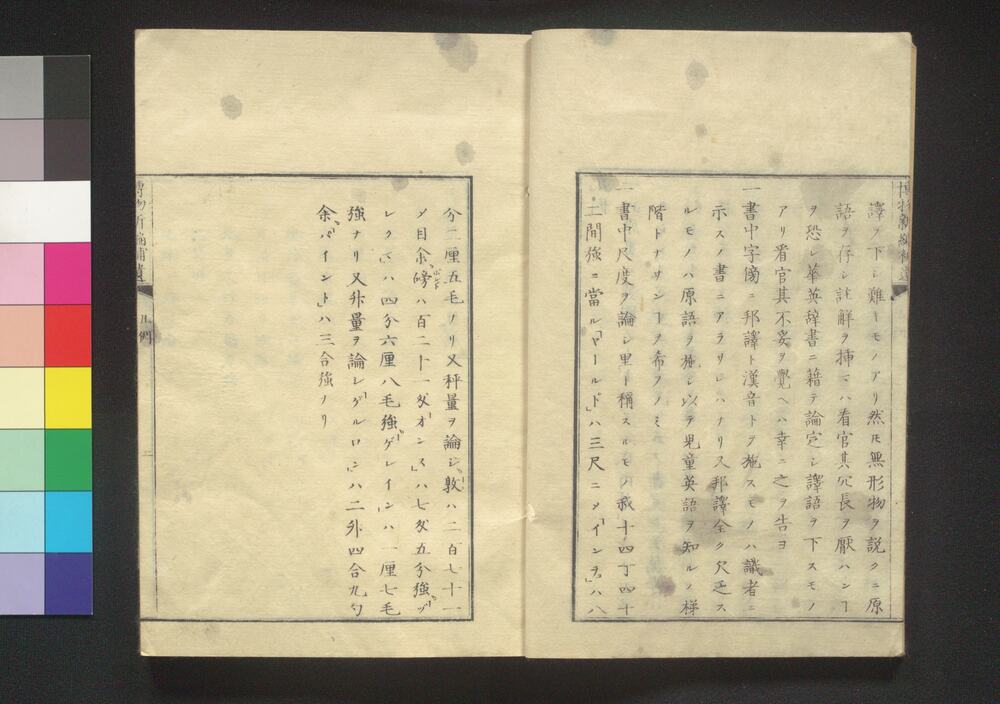 譯ヲ下シ難キモノアリ然モ無形物ヲ説クニ原
語ヲ存シ註解ヲ挿マハ看官其冗長ヲ厭ハンヿ
ヲ恐レ華英辞書ニ藉テ論定シ譯語ヲ下スモノ
アリ看官其不妥ヲ覺ヘハ幸ニ之ヲ告ヨ
一書中字傍ニ邦譯ト漢音トヲ施スモノハ識者ニ
示スノ書ニアラサレハナリ又邦譯全ク欠乏ス
ルモノハ原語ヲ施シ以テ児童英語ヲ知ルノ梯
階トナサンヿヲ希フノミ
一書中尺度ヲ論シ里ト稱スルモノ我十四丁四十
二間強ニ當ル「ヤールド」ハ三尺ニメ「インチ」ハ八
分二厘五毛ナリ又秤量ヲ論シ「敦」ハ二百七十一
メ目余「磅」ハ百二十一匁「オンス」ハ七匁五分強「ヅ
レクマ」ハ四分六厘八毛強「ゲレイン」ハ一厘七毛
強ナリ又升量ヲ論シ「ガルロン」ハ二升四合九勺
余「パイント」ハ三合強ナリ
博物新編補遺
凡例
二